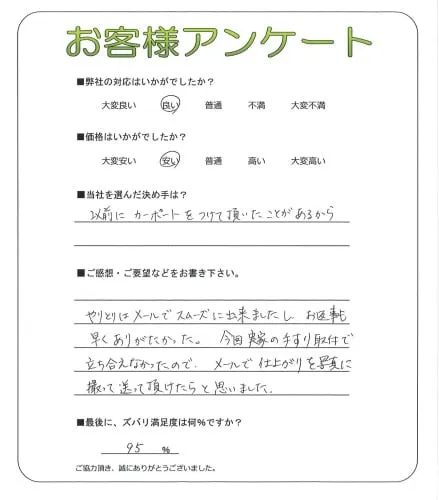 お客様アンケート
■弊社の対応はいかがでしたか？
大変良い 良い 普通 不満 大変不満
■価格はいかがでしたか？
大変安い 安い 普通 高い 大変高い
■当社を選んだ決め手は？
以前に カーポートをつけて頂いたことがあるから
■ご感想・ご要望などをお書き下さい。
やりとりはメールでスムーズに出来ましたし、お返事も
早くありがたかった。 今回実家の手すり取付で
立ち合えなかったので、メールで仕上がりを写真に
撮って送って頂けたらと思いました。
■最後に、ズバリ満足度は何％ですか？
95 ％
ご協力頂き、誠にありがとうございました。